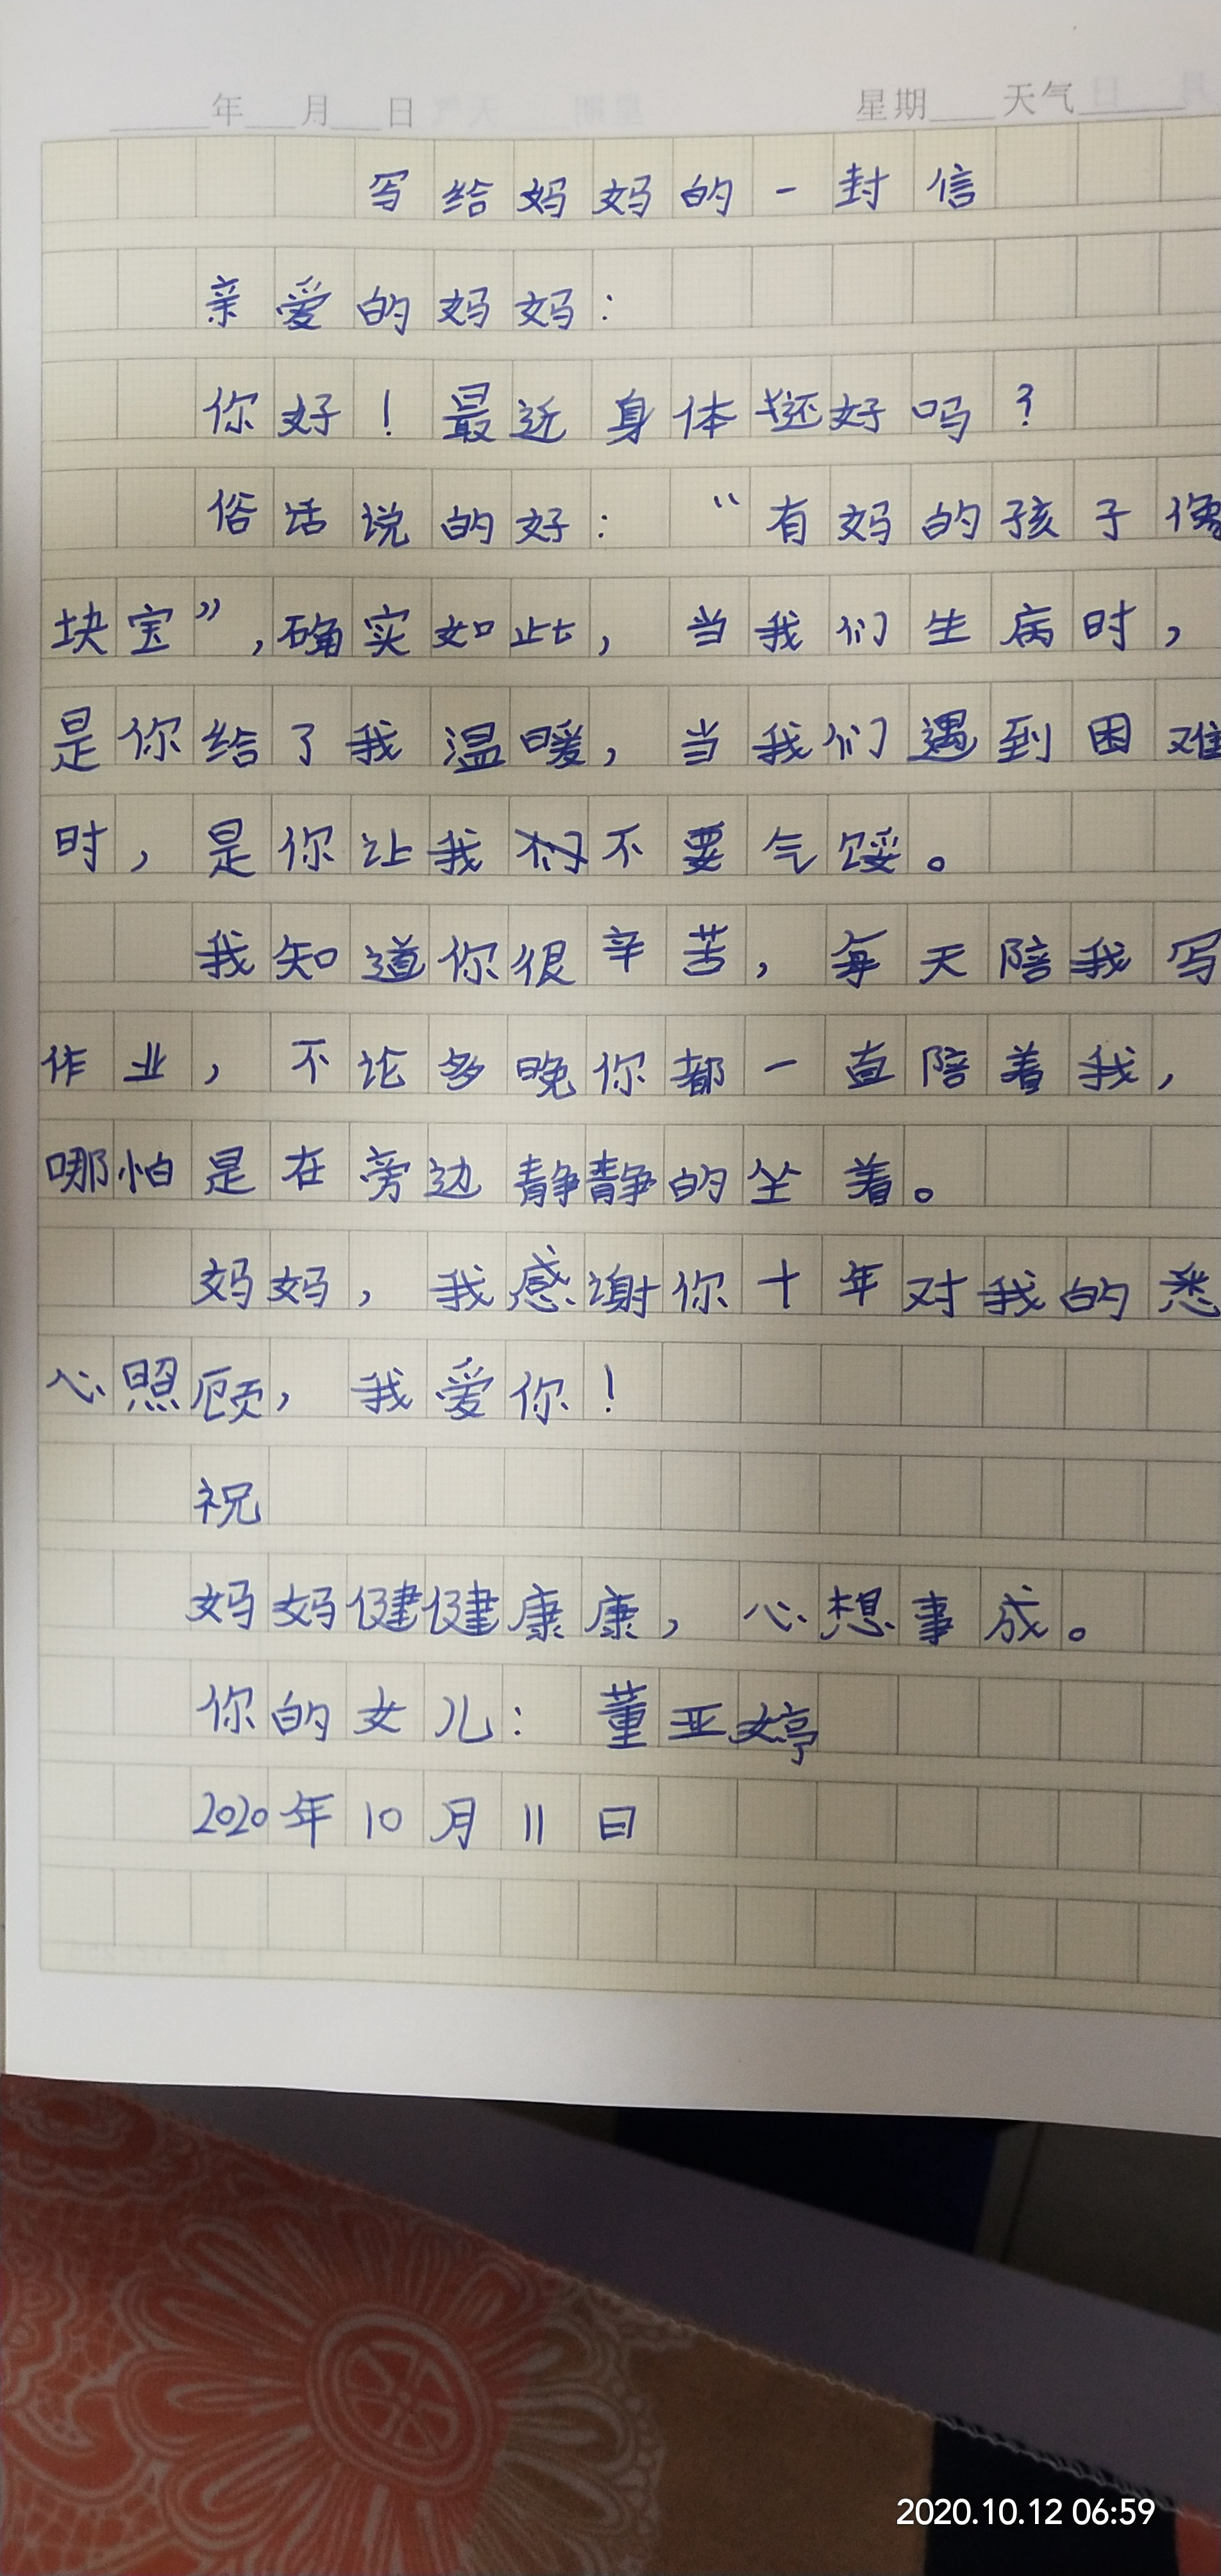 年 月 日 星期 天气
写给妈妈的一封信
亲爱的妈妈：
你好！最近身体还好吗？
俗话说的好：“有妈的孩子像
块宝”，确实如此，当我们生病时，
是你给了我温暖，当我们遇到困难
时，是你让我们不要气馁。
我知道你很辛苦，每天陪我写
作业，不论多晚你都一直陪着我，
哪怕是在旁边静静的坐着。
妈妈，我感谢你十年对我的悉
心照顾，我爱你！
祝
妈妈健健康康，心想事成。
你的女儿：董亚婷
2020年10月11日
2020.10.12 06:59